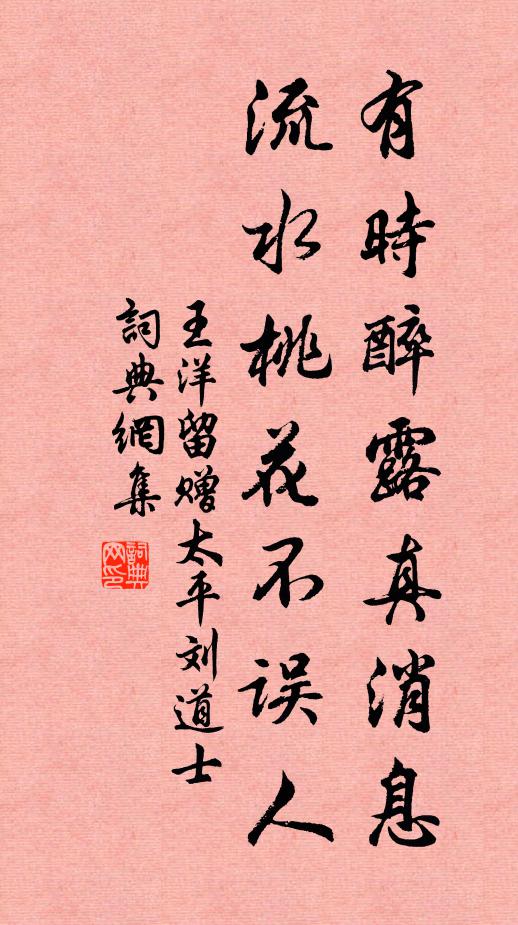 有時醉露真消息
流水桃花不误人
王洋留赠太平刘道士
詞典網集
詞典网印